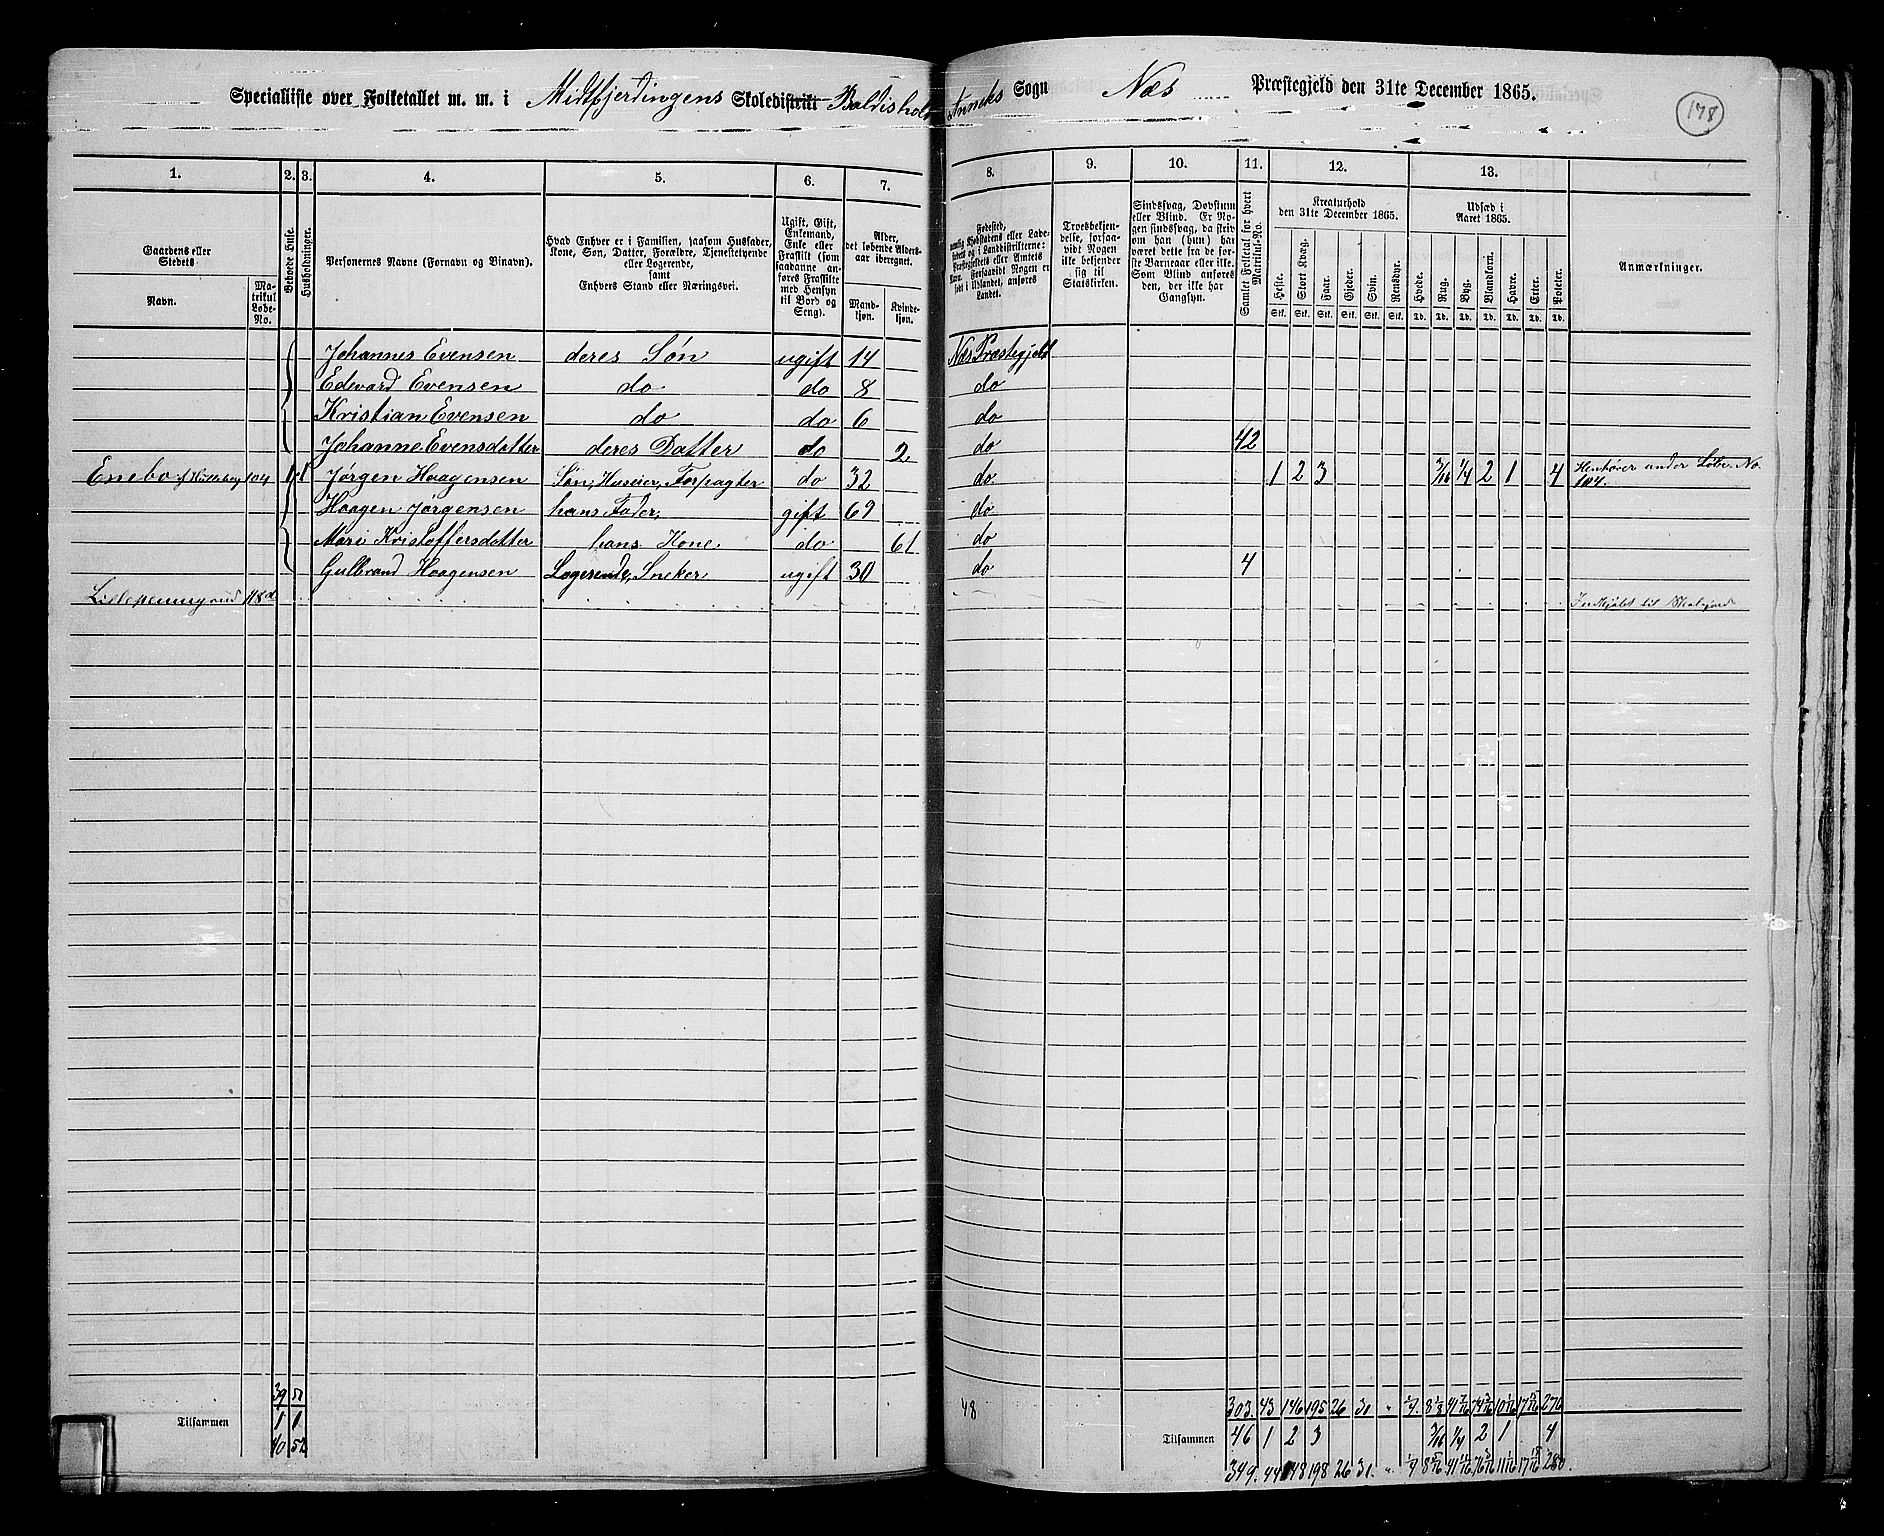 Specialliste over Folketallet m. m. i Midtfjerdingens Skoledistrikt Baldishol Anneks Sogn Næs Præstegjeld den 31te December 1865.
178
1. 2. 3. 4. 5. 6. 7. 8. 9. 10. 11. 12. 13.
Gaardens eller Stedets
Navn.
Matrikul Løbe-No.
Beboede Huse.
Husholdninger.
Personernes Navne (Fornavn og Binavn).
Hvad Enhver er i Familien, saasom Husfader, Kone, Søn, Datter, Forældre, Tjenestetyende eller Logerende, samt Enhvers Stand eller Næringsvei.
Ugift, Gift, Enkemand, Enke eller Fraskilt (som saadanne anføres Fraskilte med Hensyn til Bord og Seng).
Alder, det løbende Aldersaar iberegnet.
Mandkjøn.
Kvindekjøn.
Fødested, nemlig Kjøbstadens eller Ladestedets og i Landdistrikterne: Præstegjeldets eller Amtets Navn. Forsaavidt Nogen er født i Udlandet, anføres Landet.
Troesbekjendelse, forsaavidt Nogen ikke bekjender sig til Statskirken.
Sindssvag, Døvstum eller Blind. Er Nogen sindssvag, da skriv om han (hun) har været dette fra de første Barneaar eller ikke. Som Blind anføres den, der ikke har Gangsyn.
Samlet Folketal for hvert Matrikul-No.
Kreaturhold den 31te December 1865.
Heste. Stort Kvæg. Faar. Gjeder. Svin. Rensdyr.
Stk. Stk. Stk. Stk. Stk. Stk.
Udsæd i Aaret 1865.
Hvede. Rug. Byg. Blandkorn. Havre. Erter. Poteter.
Td. Td. Td. Td. Td. Td. Td.
Anmærkninger.
Johannes Evensen deres Søn ugift 14 Næs Præstegjeld
Edevard Evensen do do 8 do
Kristian Evensen do do 6 do
Johanne Evensdatter deres Datter do 2 do 42
Enebo 104 1 1 Jørgen Haagensen Søn, Huseier, Forpagter do 32 do 1 2 3 3/16 1/4 2 1 4 Henhører under Løbe No. 104.
Haagen Jørgensen hans Fader, gift 69 do
Mari Kristoffersdatter hans Kone do 61 do
Gulbrand Haagensen Logerende, Sneker ugift 30 do 4
118d
39 51 48 303. 43 146 195 26 31 276
Tilsammen 1 1 Tilsammen 46 1 2 3 3/16 1/4 2 1 4
40 52 349. 44 148 198 26 31. 280.